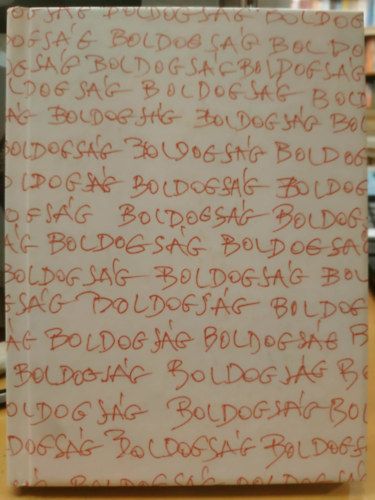 BOLDOGSÁG BOLDOG
DOGSÁG BOLDOGSÁG BOLDO
OGSÁG BOLDOGSÁG BOLDOGSÁG
OLDOGSÁG BOLDOGSÁG BOLD
ÁG BOLDOGSÁG BOLDOGSÁG BOL
BOLDOGSÁG BOLDOGSÁG BOLDOG
OLDOGSÁG BOLDOGSÁG BOLDOG
OGSÁG BOLDOGSÁG BOLDOG
ÁG BOLDOGSÁG BOLDOGSÁG
BOLDOGSÁG BOLDOGSÁG BOL
GSÁG BOLDOGSÁG BOLDOG
ÁG BOLDOGSÁG BOLDOGSÁG B
BOLDOGSÁG BOLDOGSÁG BO
OLDOGSÁG BOLDOGSÁG BOL
DOGSÁG BOLDOGSÁG BOLDOGS
ÁG BOLDOGSÁG BOLDOGSÁG